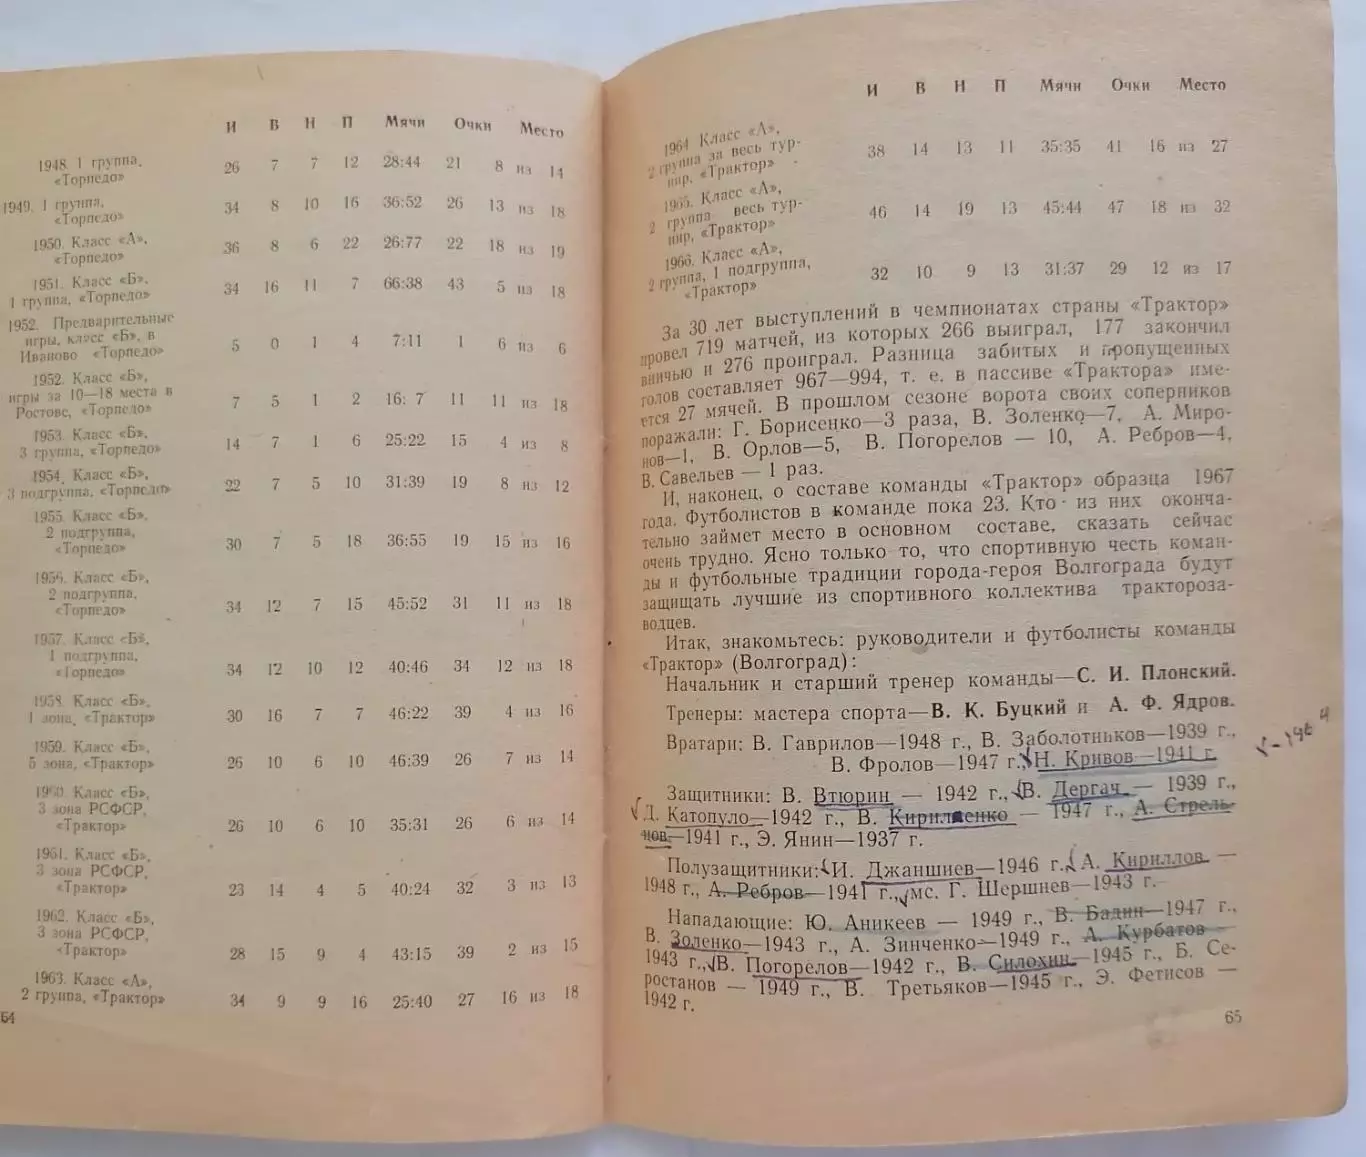 И В Н П Мячи Очки Место
1948. 1 группа,
«Торпедо» 26 7 7 12 28:44 21 8 из 14
1949. 1 группа,
«Торпедо» 34 8 10 16 36:52 26 13 из 18
1950. Класс «А»,
«Торпедо» 36 8 6 22 26:77 22 18 из 19
1951. Класс «Б»,
1 группа, «Торпедо» 34 16 11 7 66:38 43 5 из 18
1952. Предварительные
игры, класс «Б», в
Иваново «Торпедо» 5 0 1 4 7:11 1 6 из 6
1952. Класс «Б»,
игры за 10—18 места в
Ростове, «Торпедо» 7 5 1 2 16: 7 11 11 из 18
1953. Класс «Б»,
3 группа, «Торпедо» 14 7 1 6 25:22 15 4 из 8
1954. Класс «Б»,
3 подгруппа, «Торпедо» 22 7 5 10 31:39 19 8 из 12
1955. Класс «Б»,
2 подгруппа,
«Торпедо» 30 7 5 18 36:55 19 15 из 16
1956. Класс «Б»,
2 подгруппа,
«Торпедо» 34 12 7 15 45:52 31 11 из 18
1957. Класс «Б»,
1 подгруппа,
«Торпедо» 34 12 10 12 40:46 34 12 из 18
1958. Класс «Б»,
1 зона, «Трактор» 30 16 7 7 46:22 39 4 из 16
1959. Класс «Б»,
5 зона, «Трактор» 26 10 6 10 46:39 26 7 из 14
1960. Класс «Б»,
3 зона РСФСР,
«Трактор» 26 10 6 10 35:31 26 6 из 14
1961. Класс «Б»,
3 зона РСФСР,
«Трактор» 23 14 4 5 40:24 32 3 из 13
1962. Класс «Б»,
3 зона РСФСР,
«Трактор» 28 15 9 4 43:15 39 2 из 15
1963. Класс «А»,
2 группа, «Трактор» 34 9 9 16 25:40 27 16 из 18
64
И В Н П Мячи Очки Место
1964 Класс «А»,
2 группа за весь тур-
нир, «Трактор» 38 14 13 11 35:35 41 16 из 27
1965. Класс «А»,
2 группа весь тур-
нир, «Трактор» 46 14 19 13 45:44 47 18 из 32
1966. Класс «А»,
2 группа, 1 подгруппа,
«Трактор» 32 10 9 13 31:37 29 12 из 17
За 30 лет выступлений в чемпионатах страны «Трактор»
провел 719 матчей, из которых 266 выиграл, 177 закончил
вничью и 276 проиграл. Разница забитых и пропущенных
голов составляет 967—994, т. е. в пассиве «Трактора» име-
ется 27 мячей. В прошлом сезоне ворота своих соперников
поражали: Г. Борисенко—3 раза, В. Золенко—7, А. Миро-
нов—1, В. Орлов—5, В. Погорелов — 10, А. Ребров—4,
В. Савельев — 1 раз.
И, наконец, о составе команды «Трактор» образца 1967
года. Футболистов в команде пока 23. Кто из них оконча-
тельно займет место в основном составе, сказать сейчас
очень трудно. Ясно только то, что спортивную честь коман-
ды и футбольные традиции города-героя Волгограда будут
защищать лучшие из спортивного коллектива тракторозa-
водцев.
Итак, знакомьтесь: руководители и футболисты команды
«Трактор» (Волгоград):
Начальник и старший тренер команды—С. И. Плонский.
Тренеры: мастера спорта—В. К. Буцкий и А. Ф. Ядров.
Вратари: В. Гаврилов—1948 г., В. Заболотников—1939 г.,
В. Фролов—1947 г., Н. Кривов—1941 г.
Защитники: В. Втюрин — 1942 г., В. Дергач — 1939 г.,
Д. Катопуло—1942 г., В. Кириленко — 1947 г., А. Стрель-
нов—1941 г., Э. Янин—1937 г.
Полузащитники: И. Джаншиев—1946 г., А. Кириллов —
1948 г., А. Ребров—1941 г., мс. Г. Шершнев—1943 г.
Нападающие: Ю. Аникеев — 1949 г., В. Бадин—1947 г.,
В. Золенко—1943 г., А. Зинченко—1949 г., А. Курбатов —
1943 г., В. Погорелов—1942 г., В. Силохин—1945 г., Б. Се-
ростанов — 1949 г., В. Третьяков—1945 г., Э. Фетисов —
1942 г.
65